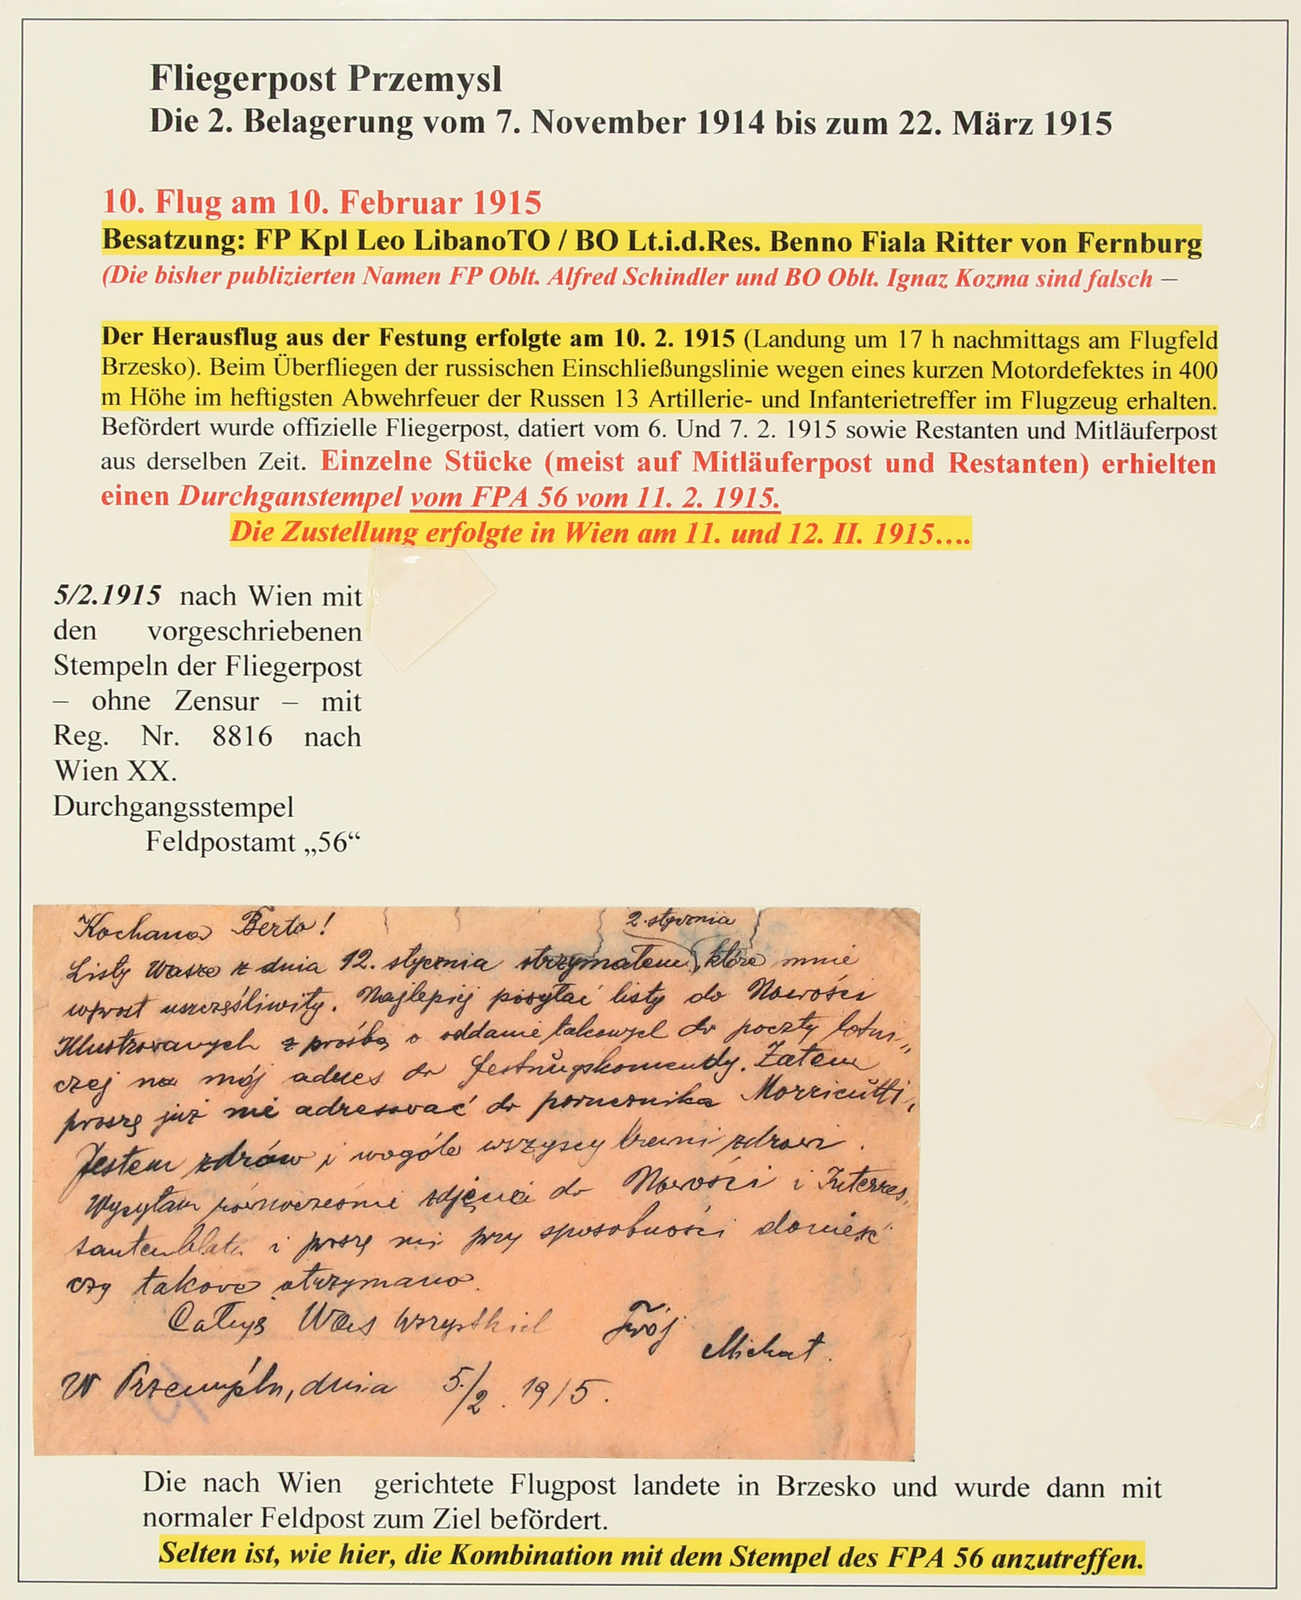 Fliegerpost Przemysl
Die 2. Belagerung vom 7. November 1914 bis zum 22. März 1915
10. Flug am 10. Februar 1915
Besatzung: FP Kpl Leo LibanoTO / BO Lt.i.d.Res. Benno Fiala Ritter von Fernburg
(Die bisher publizierten Namen FP Oblt. Alfred Schindler und BO Oblt. Ignaz Kozma sind falsch –
Der Herausflug aus der Festung erfolgte am 10. 2. 1915 (Landung um 17 h nachmittags am Flugfeld
Brzesko). Beim Überfliegen der russischen Einschließungslinie wegen eines kurzen Motordefektes in 400
m Höhe im heftigsten Abwehrfeuer der Russen 13 Artillerie- und Infanterietreffer im Flugzeug erhalten.
Befördert wurde offizielle Fliegerpost, datiert vom 6. Und 7. 2. 1915 sowie Restanten und Mitläuferpost
aus derselben Zeit. Einzelne Stücke (meist auf Mitläuferpost und Restanten) erhielten
einen Durchganstempel vom FPA 56 vom 11. 2. 1915.
Die Zustellung erfolgte in Wien am 11. und 12. II. 1915....
5/2.1915 nach Wien mit
den vorgeschriebenen
Stempeln der Fliegerpost
– ohne Zensur – mit
Reg. Nr. 8816 nach
Wien XX.
Durchgangsstempel
Feldpostamt „56“
Kochana Berto!
2. stycznia
Listy Wasze z dnia 12. stycznia otrzymałem, które mnie
wprost uszczęśliwiły. Najlepiej posyłać listy do Nowości
Illustrowanych z prośbą o oddanie takowych do poczty lotni„
czej na mój adres do Festungskomendy. Zatem
proszę już nie adresować do porucznika Morricutti.
Jestem zdrów i wogóle wszyscy krewni zdrowi.
Wysyłam równocześnie zdjęcia do Nowości i Interes„
santenblatu i proszę mi przy sposobności donieść
czy takowe otrzymano.
Całuję Was wszystkich Twój
Michał.
W Przemyślu, dnia 5/2. 1915.
Die nach Wien gerichtete Flugpost landete in Brzesko und wurde dann mit
normaler Feldpost zum Ziel befördert.
Selten ist, wie hier, die Kombination mit dem Stempel des FPA 56 anzutreffen.